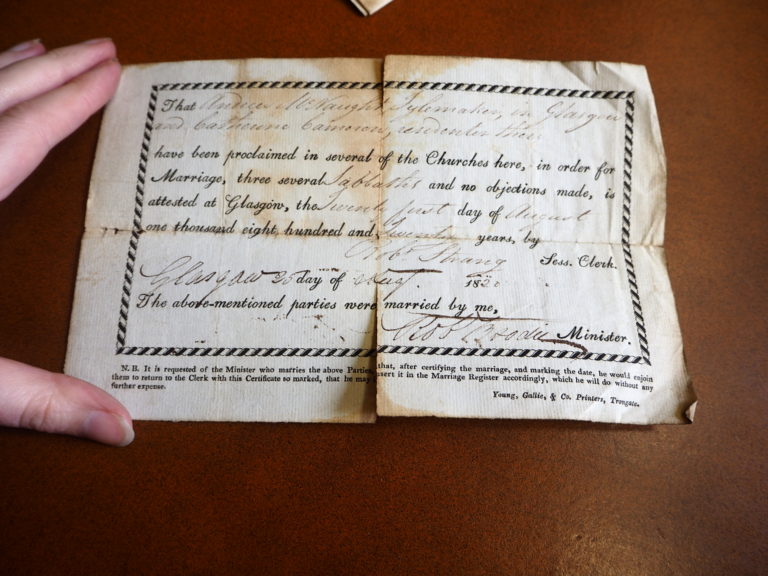 That Andrew McNaught Tylemaker, in Glasgow
and Catherine Cameron, residenter there
have been proclaimed in several of the Churches here, in order for
Marriage, three several Sabbaths and no objections made, is
attested at Glasgow, the Twenty first day of August
one thousand eight hundred and Twenty years, by
Robt Strang Sess. Clerk.
Glasgow 25 day of Augt 1820
The above-mentioned parties were married by me,
Robt Brodie Minister.
N. B. It is requested of the Minister who marries the above Parties, that, after certifying the marriage, and marking the date, he would enjoin
them to return to the Clerk with this Certificate so marked, that he may insert it in the Marriage Register accordingly, which he will do without any
further expense.
Young, Gallie, & Co. Printers, Trongate.